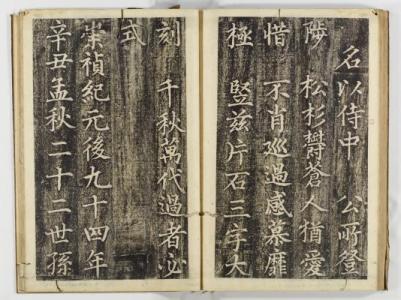 名以侍中 公所登
陟 松杉欝蒼人猶愛
惜 不肖廵過感慕靡
極 竪玆片石三字大
刻 千秋萬代過者必
式
崇禎紀元後九十四年
辛丑孟秋二十二世孫